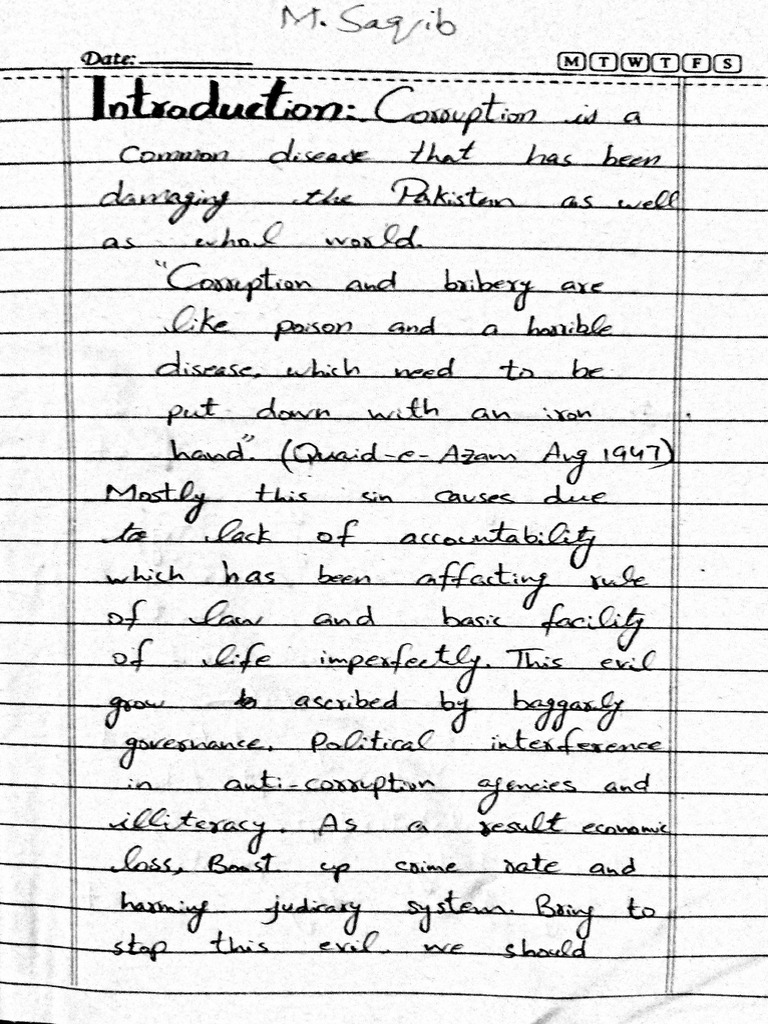 M. Saqib
Date:
M T W T F S
Introduction: Corruption is a
common disease that has been
damaging the Pakistan as well
as whol world.
"Corruption and bribery are
like poison and a horrible
disease, which need to be
put down with an iron
hand". (Quaid-e-Azam Aug 1947)
Mostly this sin causes due
to lack of accountability
which has been affacting rule
of law and basic facility
of life imperfectly. This evil
grow ascribed by baggarly
governance, Political interference
in anti-corruption agencies and
illiteracy. As a result economic
loss, Boost up crime rate and
harming judicary system. Bring to
stop this evil. we should